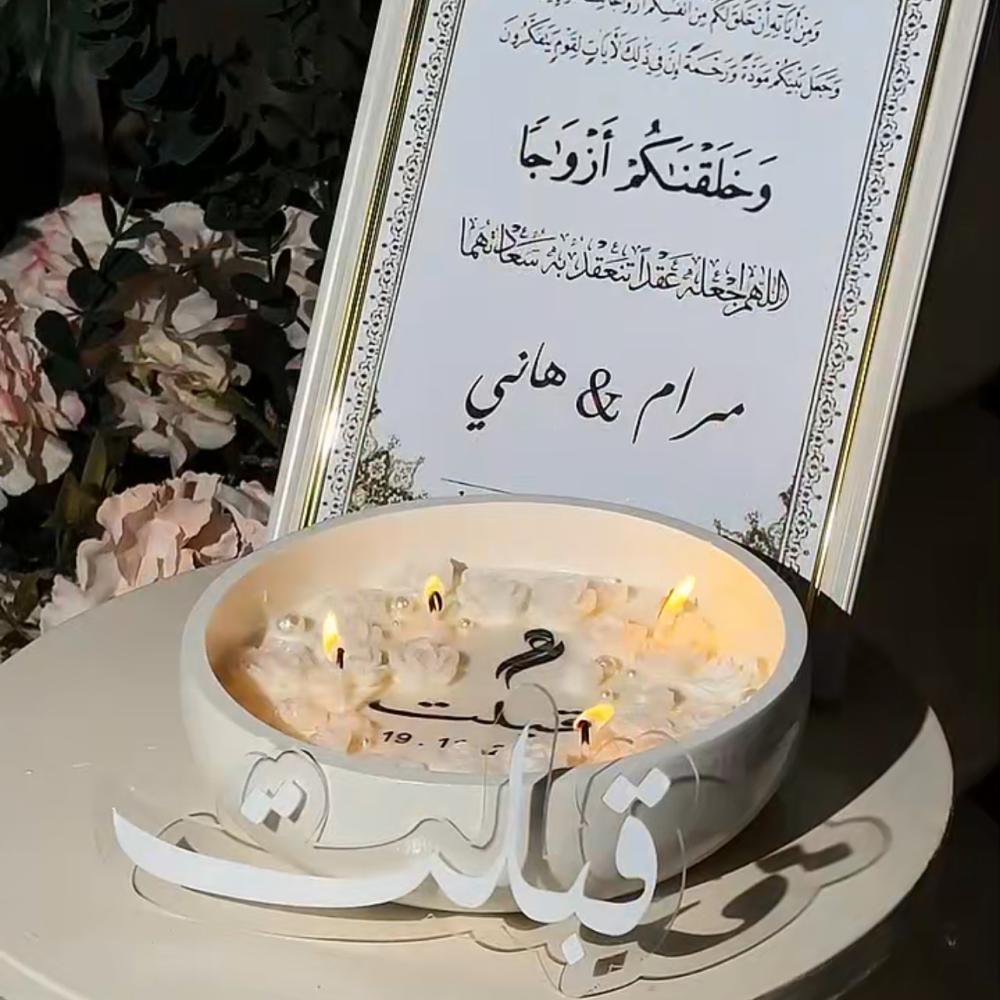 وَمِنْ آيَاتِهِ أَنْ خَلَقَ لَكُم مِّنْ أَنفُسِكُمْ أَزْوَاجًا
وَجَعَلَ بَيْنَكُم مَّوَدَّةً وَرَحْمَةً إِنَّ فِي ذَٰلِكَ لَآيَاتٍ لِّقَوْمٍ يَتَفَكَّرُونَ
وَخَلَقْنَاكُمْ أَزْوَاجًا
اللهم اجعله عقداً تنعقد به سعادتهما
مرام & هاني
م
قبلت
19 . 1
قبلت